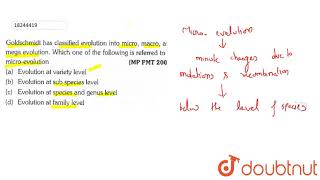 18244419
Goldschmidt has classified evolution into micro, macro, a
mega evolution. Which one of the following is referred to
micro-evolution [MP PMT 200
(a) Evolution at variety level
(b) Evolution at sub species level
(c) Evolution at species and genus level
(d) Evolution at family level
Micro evolution
minute changes due to
mutations & recombination
below the level of species
doubtnut